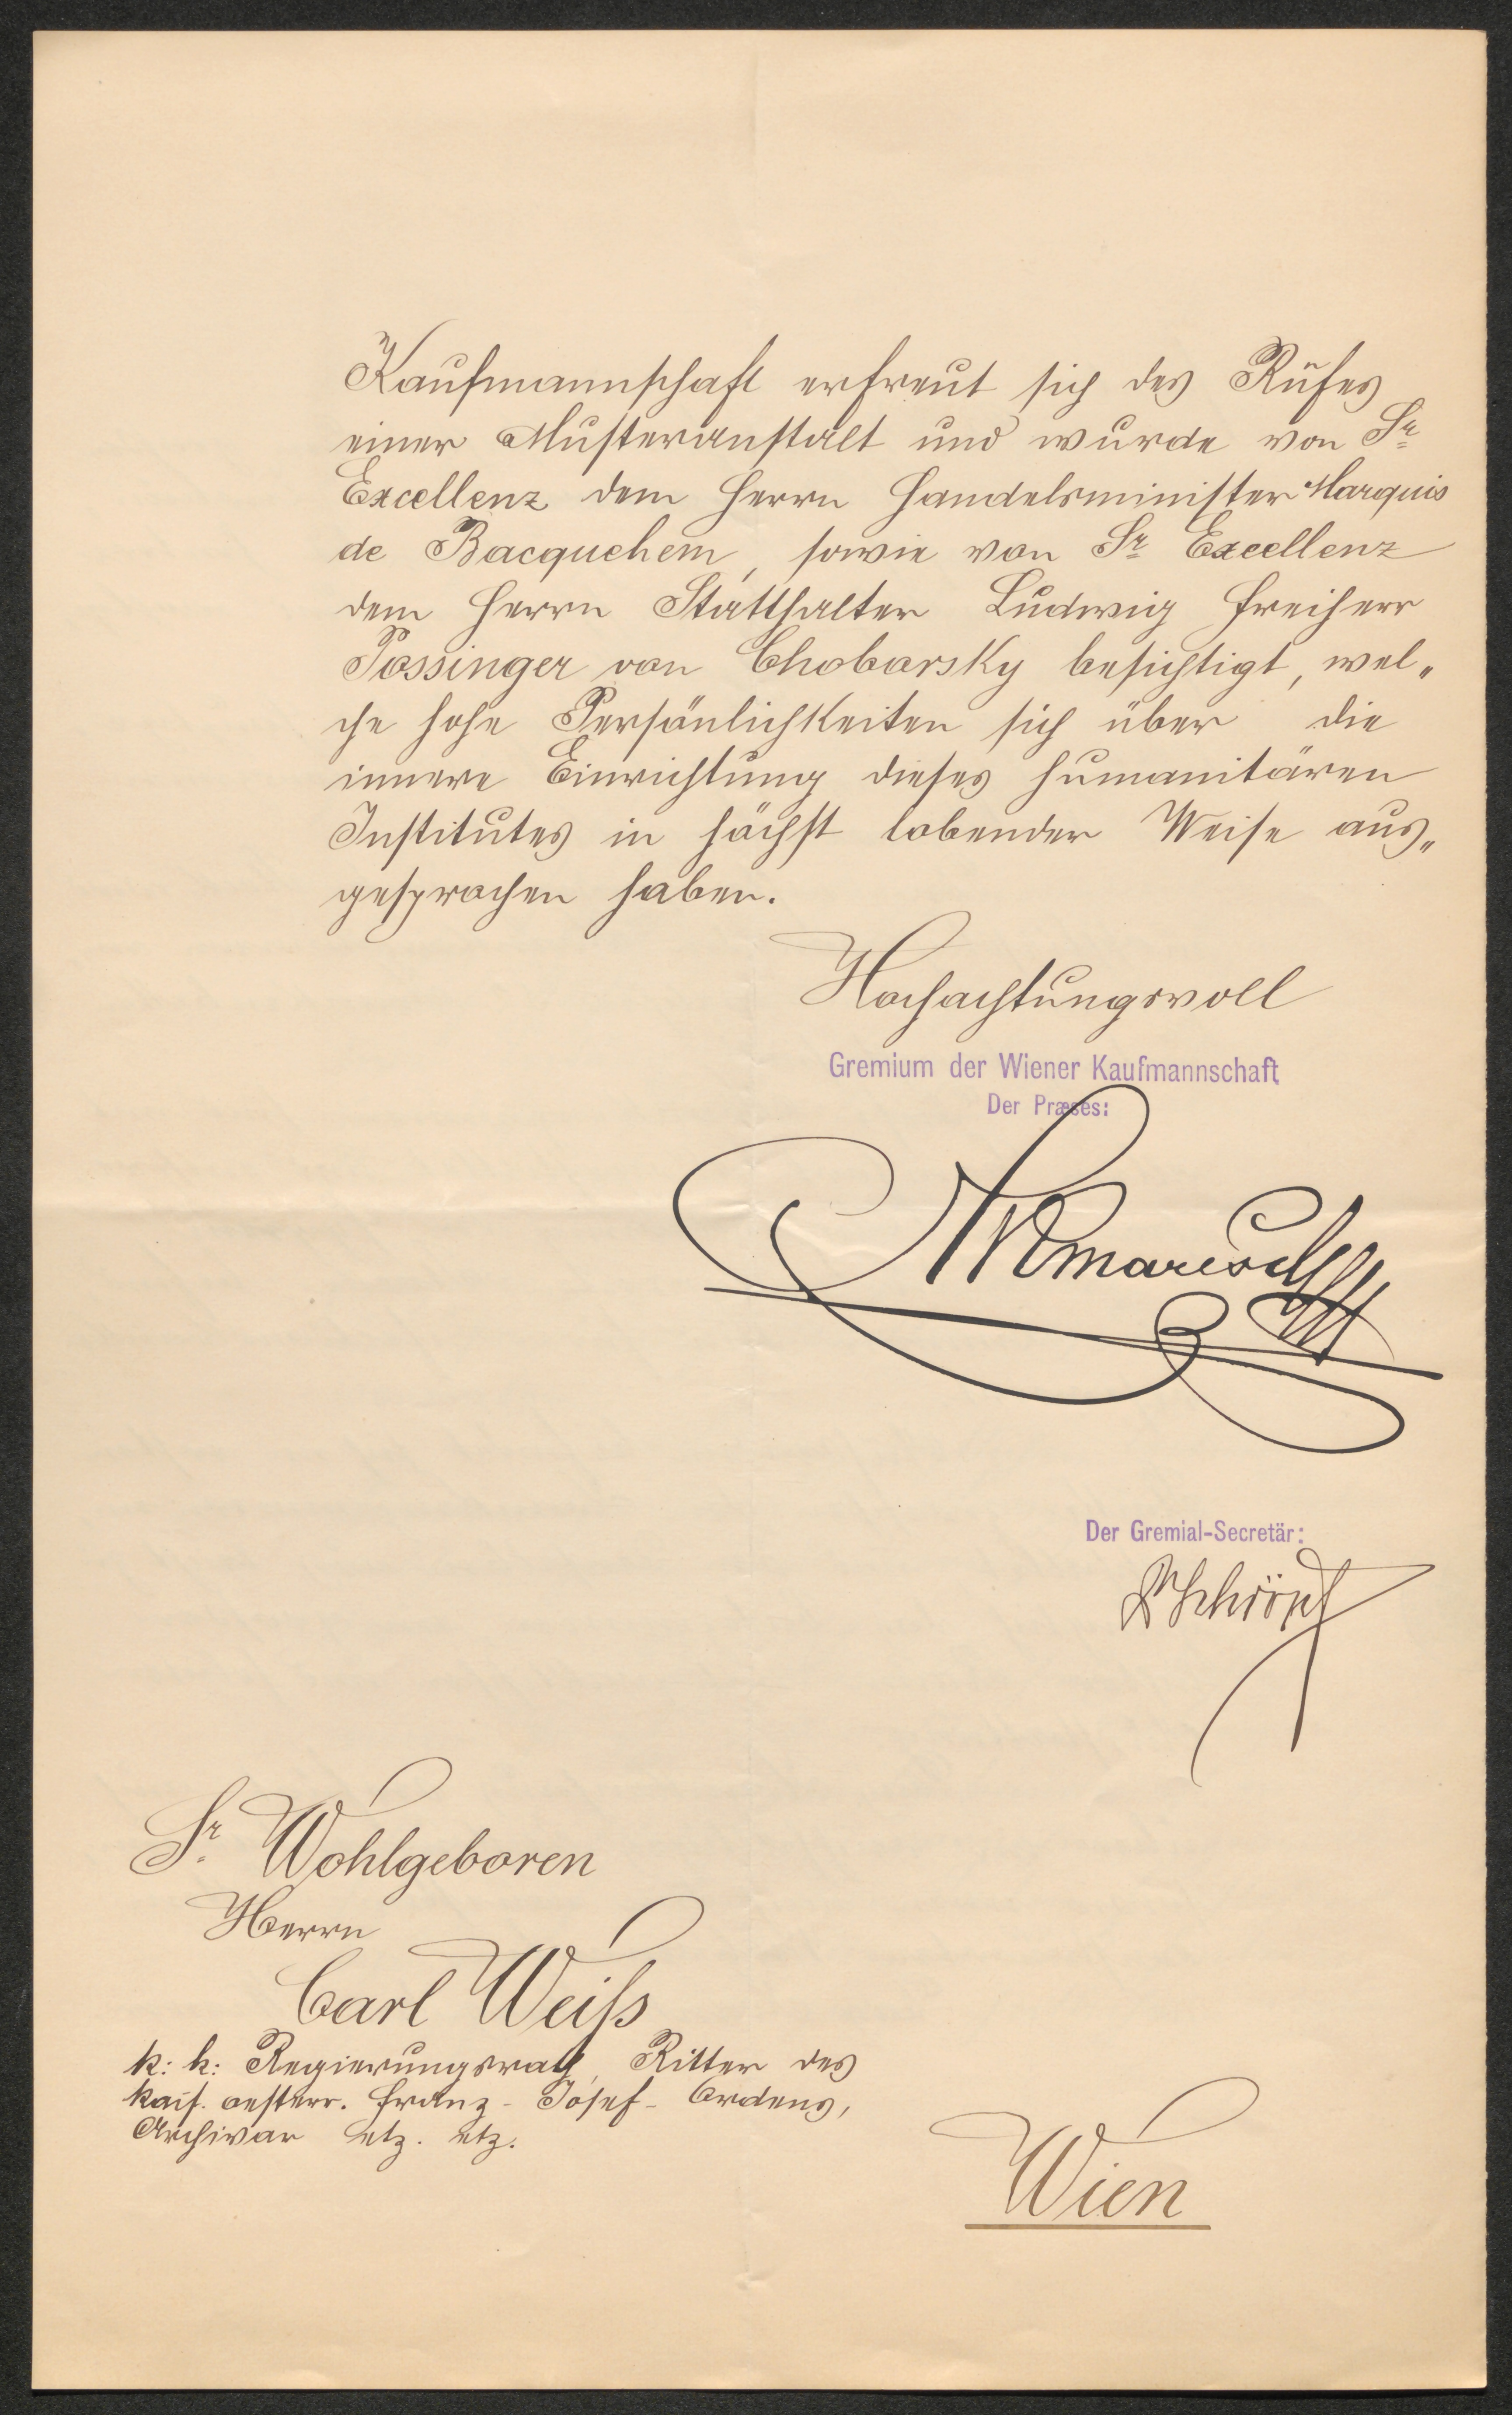 Kaufmannschaft erfreut sich des Rufes
einer Musteranstalt und wurde von Sr
Excellenz dem Herrn Handelsminister Marquis
de Bacquehem, sowie von Sr Excellenz
dem Herrn Statthalter Ludwig Freiherr
Possinger von Chobarsky besichtigt, wel„
che hohe Persönlichkeiten sich über die
innere Einrichtung dieses humanitären
Institutes in höchst lobender Weise aus„
gesprochen haben.
Hochachtungsvoll
Gremium der Wiener Kaufmannschaft
Der Præses:
Der Gremial-Secretär:
Sr. Wohlgeboren
Herrn
Carl Weiss
k: k: Regierungsrath, Ritter des
kais. oesterr. Franz-Josef-Ordens,
Archivar etz. etz.
Wien